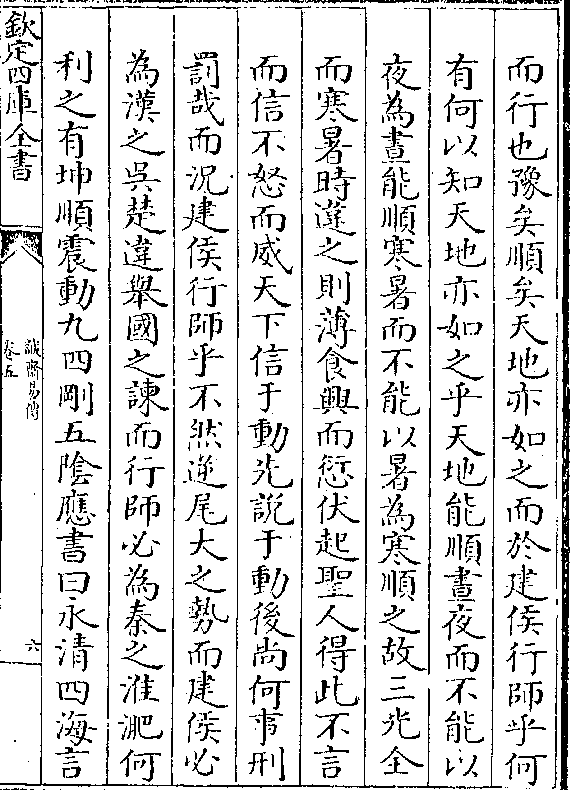 而行也豫矣順矣天地亦如之而於建侯行師乎何
有何以知天地亦如之乎天地能順晝夜而不能以
夜為晝能順寒暑而不能以暑為寒順之故三光全
而寒暑時違之則薄食興而愆伏起聖人得此不言
而信不怒而威天下信于動先說于動後尚何事刑
罰哉而況建侯行師乎不然逆尾大之勢而建侯必
為漢之吳楚違舉國之諫而行師必為秦之淮淝何
利之有坤順震動九四剛五陰應書曰永清四海言
欽定四庫全書
誠齋易傳
卷五
六